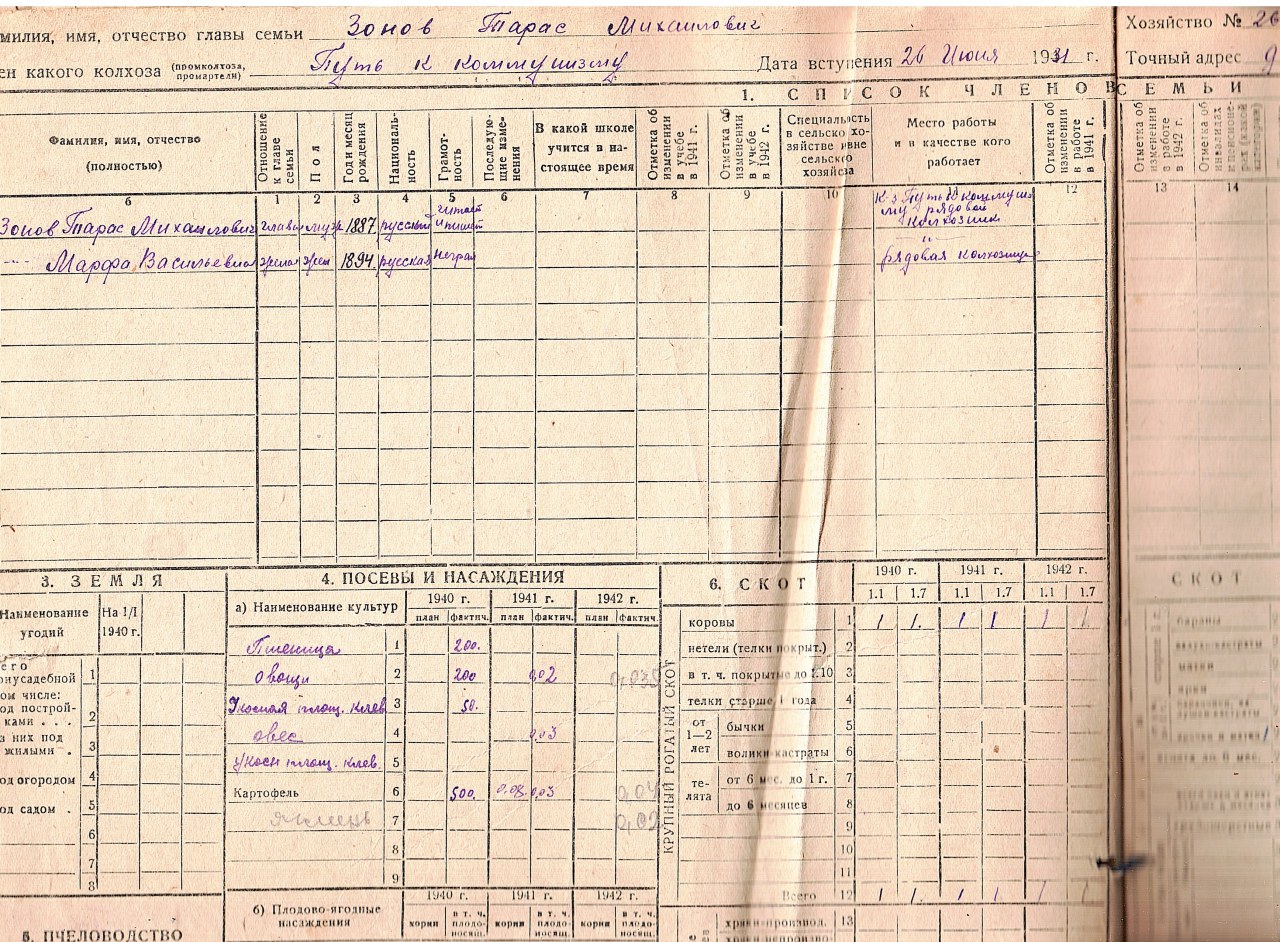 милия, имя, отчество главы семьи Зонов Тарас Михаилович
Хозяйство № 26
ен какого колхоза (промколхоза, промартели) Путь к коммунизму Дата вступения 26 Июня 1931 г.
Точный адрес 9
1. СПИСОК ЧЛЕНОВ СЕМЬИ
Фамилия, имя, отчество (полностью)
Отношение к главе семьи
Пол
Год и месяц рождения
Националь-ность
Грамот-ность
Последую-щие изме-нения
В какой школе учится в на-стоящее время
Отметка об изменении в учебе в 1941 г.
Отметка об изменении в учебе в 1942 г.
Специальность в сельско хо-зяйстве и вне сельско хозяйсза
Место работы и в качестве кого работает
Отметка об изменении в работе в 1941 г.
Отметка об изменении в работе в 1942 г.
Отметка об инвалидах
б 1 2 3 4 5 6 7 8 9 10 11 12 13 14
Зонов Тарас Михаилович глава муж 1887 русский читает и пишет к-з Путь к коммунизму рядовой колхозник
-- Марфа Васильевна жена жен 1894 русская неграм " рядовая колхозница
3. ЗЕМЛЯ
Наименование угодий
На 1/I 1940 г.
его
риусадебной 1
ом числе:
од построй-
ками . . . 2
з них под
жилыми . 3
од огородом 4
од садом . 5
6
7
8
5. ПЧЕЛОВОДСТВО
4. ПОСЕВЫ И НАСАЖДЕНИЯ
а) Наименование культур
1940 г. 1941 г. 1942 г.
план фактич. план фактич. план фактич.
Пшеница 1 200.
овощи 2 200 0,02
Укосная площ. клев 3 50.
овес 4 0,03
укосн площ. клев. 5
Картофель 6 500. 0,08 0,03 0,04
ячмень 7 0,02
8
9
б) Плодово-ягодные насаждения
1940 г. 1941 г. 1942 г.
корни в т. ч. плодо-носящ. корни в т. ч. плодо-носящ. корни в т. ч. плодо-носящ.
6. СКОТ
1940 г. 1941 г. 1942 г.
1.1 1.7 1.1 1.7 1.1 1.7
КРУПНЫЙ РОГАТЫЙ СКОТ
коровы 1 1 1. 1 1 1 1
нетели (телки покрыт.) 2
в т. ч. покрытые до 1.10 3
телки старше 1 года 4
от 1—2 лет
бычки 5
волики-кастраты 6
те-лята
от 6 мес. до 1 г. 7
до 6 месяцев 8
9
10
11
Всего 12 1 1. 1 1 1 1
хряки-производ. 13
СКОТ
бараны
матки
ярки